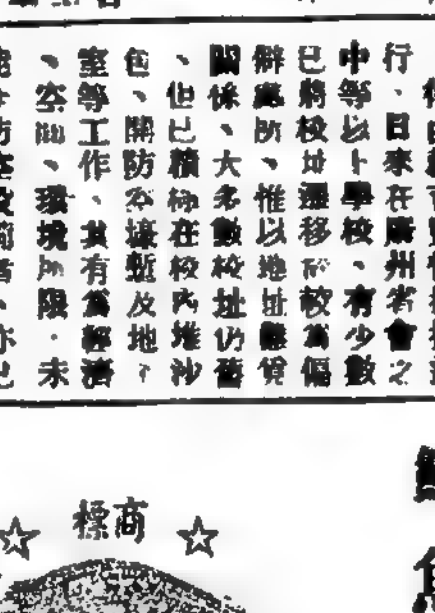 行、日來在廣州省會之
中等以下學校、有少數
已將校址遷移於較爲偏
僻處所、惟以地址難覓
關係、大多數校址仍舊
、但已積極在校內堆沙
包、開防空壕塹及地下
室等工作、其有爲經濟
、空間、環境所限、未
商標